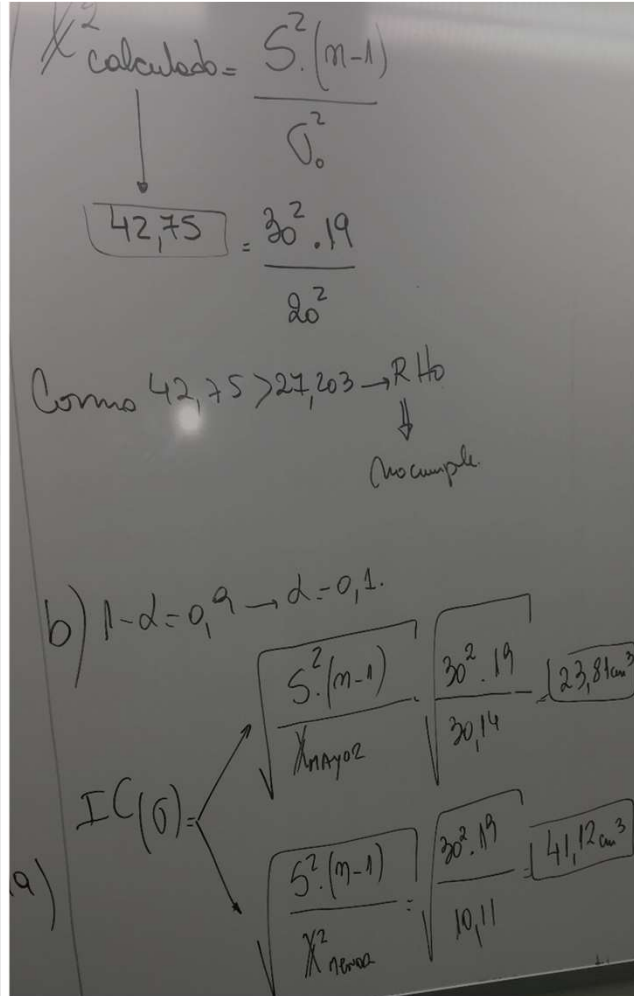 X² calculado = S².(n-1) / σ₀²
42,75 = 30².19 / 20²
Como 42,75 > 27,203 → RH₀
⇓
No cumple.
b) 1-α=0,9 → α=0,1.
√(S².(n-1) / X MAYOR) = √(30².19 / 30,14) = 23,81cm³
IC(σ)=
√(S².(n-1) / X² menor) = √(30².19 / 10,11) = 41,12cm³
a)